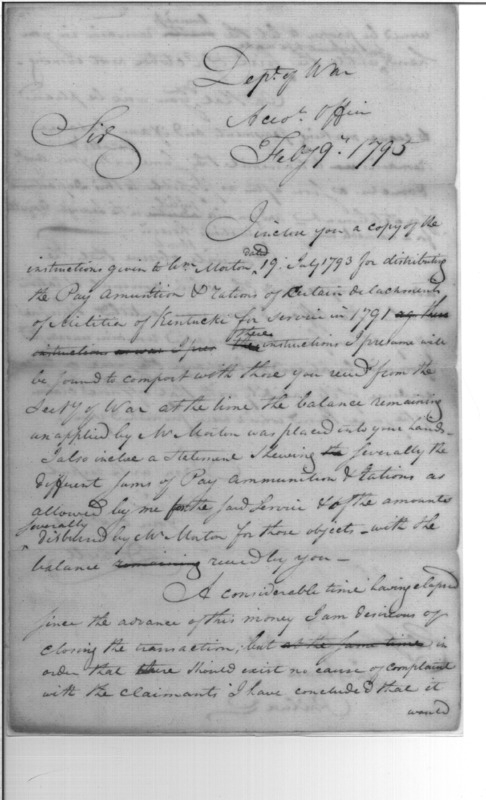 Dept. of War
Accots. Office
Feby 9th. 1795
Sir
I inclose you a copy of the
dated
instructions given to Wm. Morton 19. July 1793 for distributing
the Pay Amunition & Rations of Certain detachments
of Militia of Kentucke for Service in 1791
these
instructions I presume will
be found to comport with those you recied from the
Secty of War at the time the balance remaining
unapplied by Mr Morton was placed into your hands -
I also inclose a Statement Shewing the Severally the
different Sums of Pay Ammunition & Rations as
allowed by me for the said Service & of the amounts
severally
disbursed by Mr Morton for those objects - with the
balance remaining recied by you -
A considerable time having elapsed
since the advance of this money I am desireous of
closing the transaction; but at the same time, in
order that there should exist no cause of complaint
with the claimants I have concluded that it
would